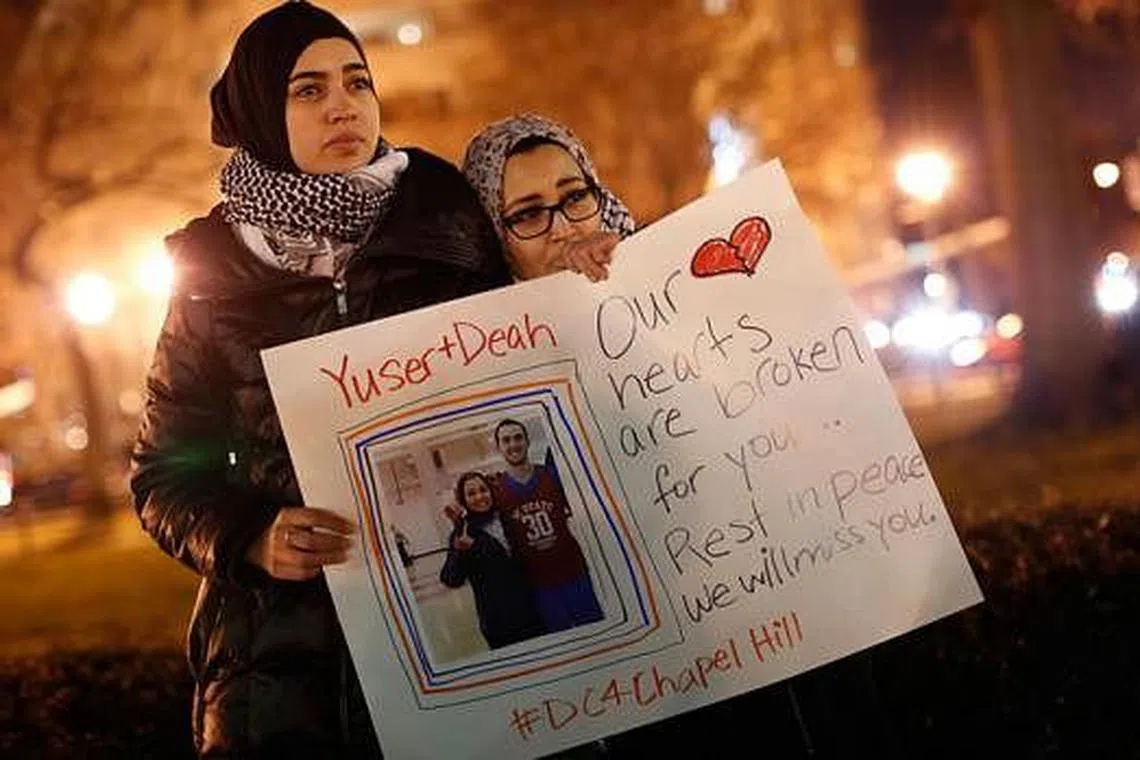 Yuser+Deah
30
Our
hearts
are broken
for you ..
Rest in peace
we will miss you.
#DC4Chapel Hill